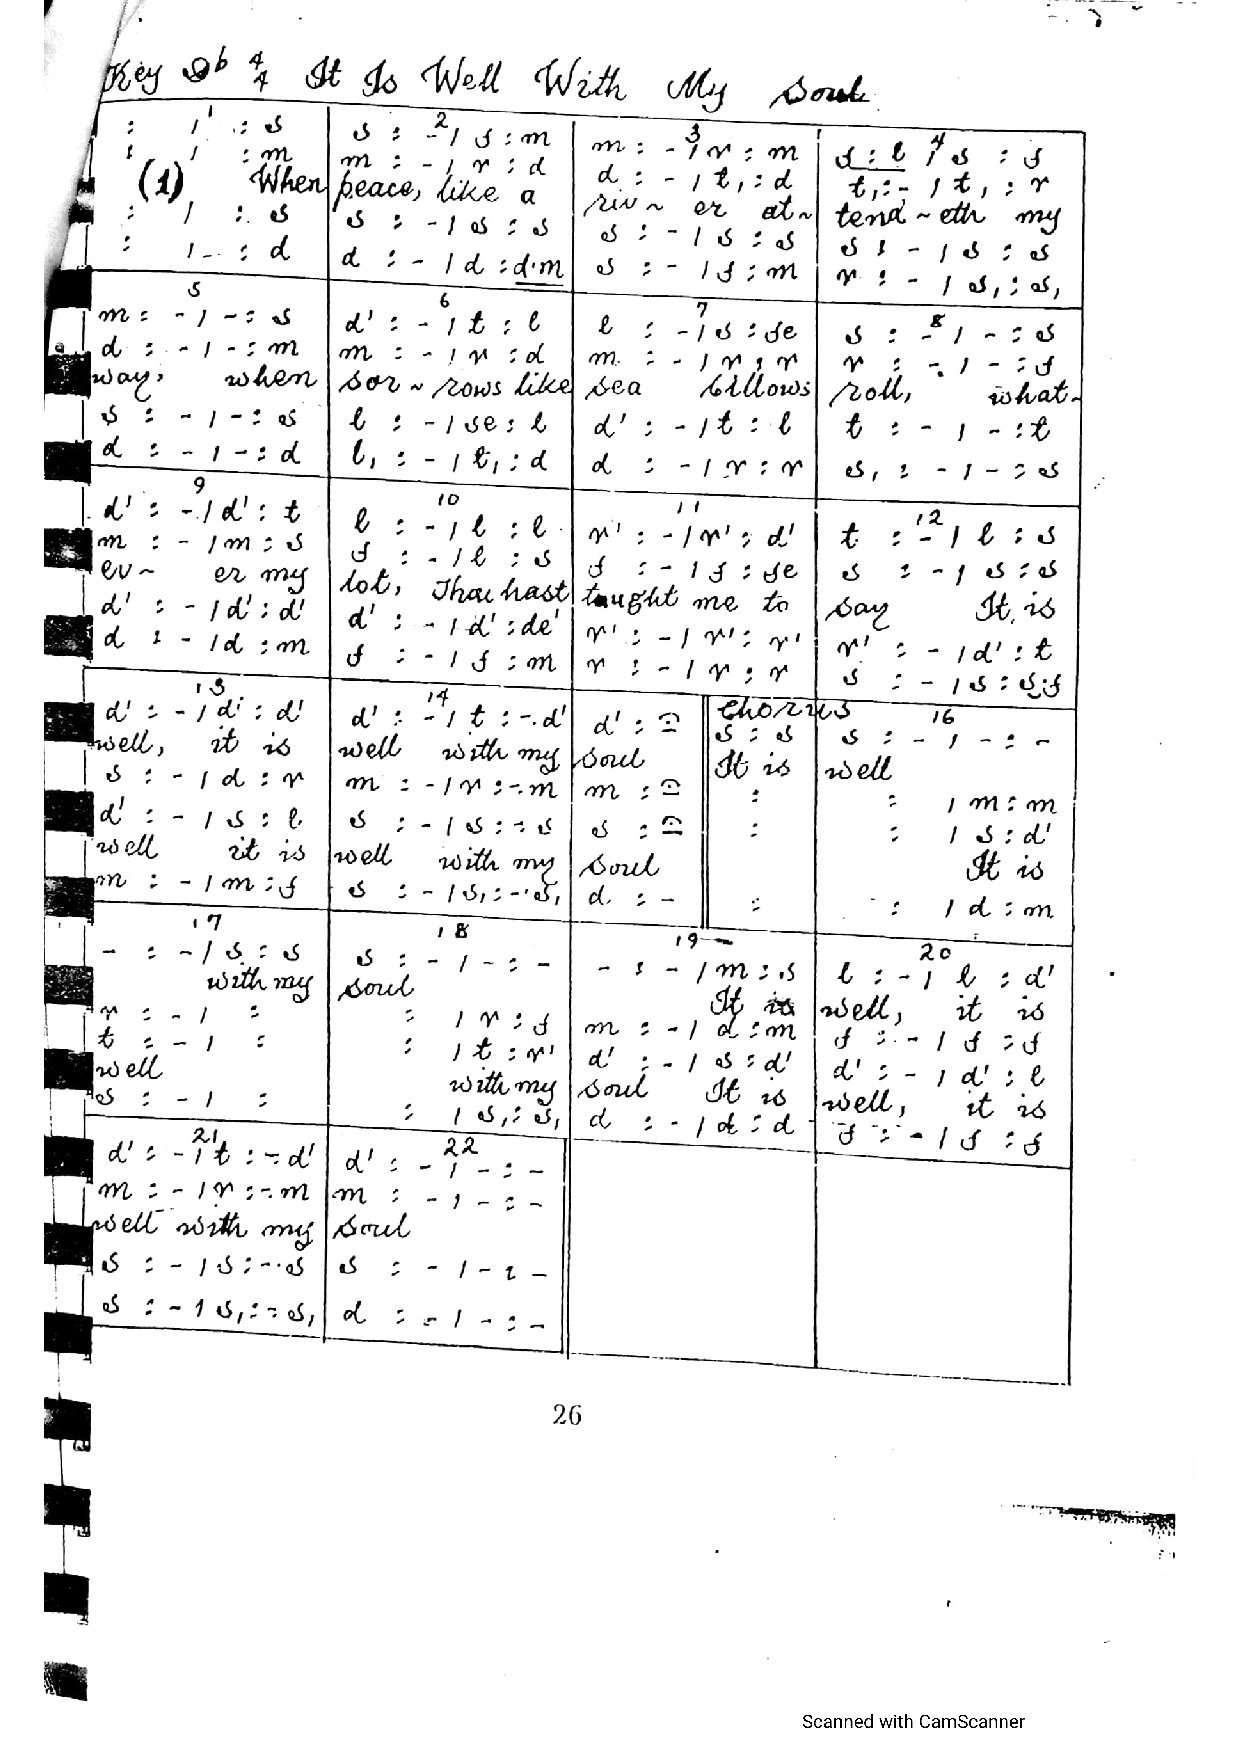 Key Db 4/4 It Is Well With My Soul
1
: / .: s
: / : m
(1) When
: / : s
: / - : d
2
s : - / f : m
m : - / r : d
peace, like a
s : - / s : s
d : - / d : d.m
3
m : - / r : m
d : - / t, : d
riv~ er at~
s : - / s : s
s : - / f : m
4
f : l / s : f
t, : - / t, : r
tend~eth my
s : - / s : s
r : - / s, : s,
5
m : - / - : s
d : - / - : m
way, when
s : - / - : s
d : - / - : d
6
d' : - / t : l
m : - / r : d
sor~rows like
l : - / se : l
l, : - / t, : d
7
l : - / s : fe
m : - / r : r
sea billows
d' : - / t : l
d : - / r : r
8
s : - / - : s
r : - / - : f
roll, what-
t : - / - : t
s, : - / - : s
9
d' : - / d' : t
m : - / m : s
ev~ er my
d' : - / d' : d'
d : - / d : m
10
l : - / l : l
f : - / l : s
lot, Thou hast
d' : - / d' : de'
f : - / f : m
11
r' : - / r' : d'
f : - / f : fe
taught me to
r' : - / r' : r'
r : - / r : r
12
t : - / l : s
s : - / s : s
say It is
r' : - / d' : t
s : - / s : s.f
13
d' : - / d' : d'
well, it is
s : - / d : r
d' : - / s : l
well it is
m : - / m : f
14
d' : - / t : -.d'
well with my
m : - / r : -.m
s : - / s : -.s
well with my
s : - / s, : -.s,
d' :
soul
m :
s :
soul
d : -
Chorus
s : s
It is
:
:
:
16
s : - / - : -
well
: / m : m
: / s : d'
It is
: / d : m
17
- : - / s : s
with my
r : - / :
t : - / :
well
s : - / :
18
s : - / - : -
soul
: / r : f
: / t : r'
with my
: / s, : s,
19
- : - / m : s
It is
m : - / d : m
d' : - / s : d'
soul It is
d : - / d : d
20
l : - / l : d'
well, it is
f : - / f : f
d' : - / d' : l
well, it is
f : - / f : f
21
d' : - / t : -.d'
m : - / r : -.m
well with my
s : - / s : -.s
s : - / s, : -.s,
22
d' : - / - : -
m : - / - : -
soul
s : - / - : -
d : - / - : -
26
Scanned with CamScanner